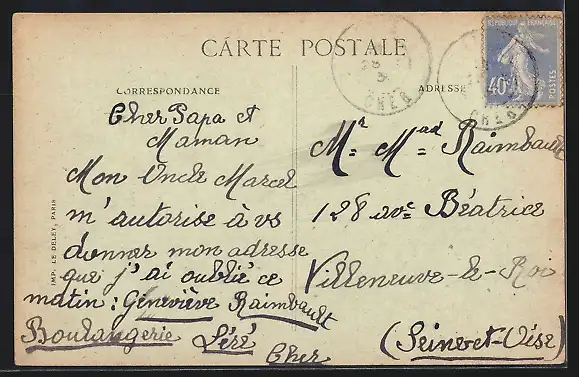 CARTE POSTALE
CORRESPONDANCE
ADRESSE
RÉPUBLIQUE FRANÇAISE
40c
POSTES
CHER
CHER
Cher Papa et
Maman
Mon Oncle Marcel
m'autorise à vs
donner mon adresse
que j'ai oublié ce
matin : Geneviève Raimbault
Boulangerie Léré
Cher
Mr Mad Raimbault
128 avc Béatrice
Villeneuve-le-Roi
(Seine-et-Oise)
IMP. LE DELEY, PARIS